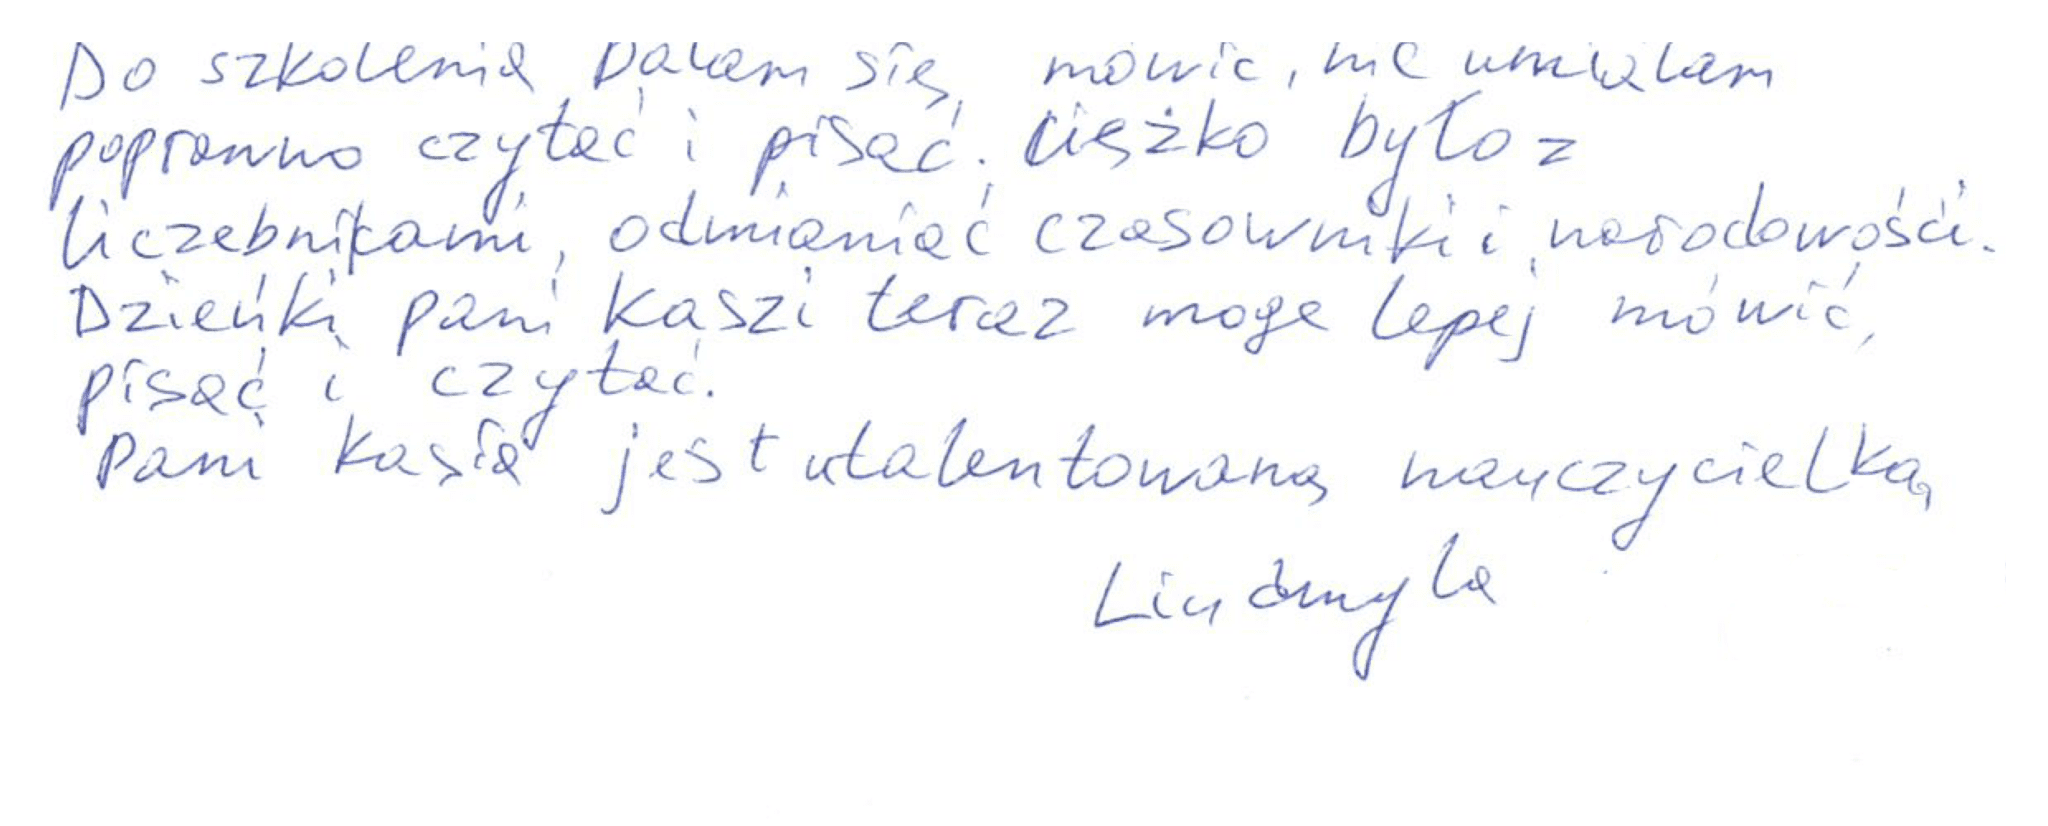 Do szkolenia bałam się mówić, nie umiałam
poprawno czytać i pisać. Ciężko było z
liczebnikami, odmianiać czasowniki i narodowości.
Dzieńki pani Kaszi teraz moge lepej mówić,
pisać i czytać.
Pani Kasia jest utalentowaną nauczycielką
Liudmyla